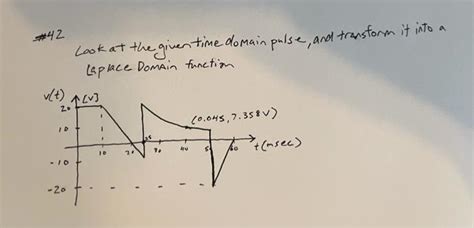 #42
Look at the given time domain pulse, and transform it into a
Laplace Domain function
v(t) [V]
20
(0.045, 7.358V)
10
10 20 25 30 40 50 60 t(msec)
-10
-20